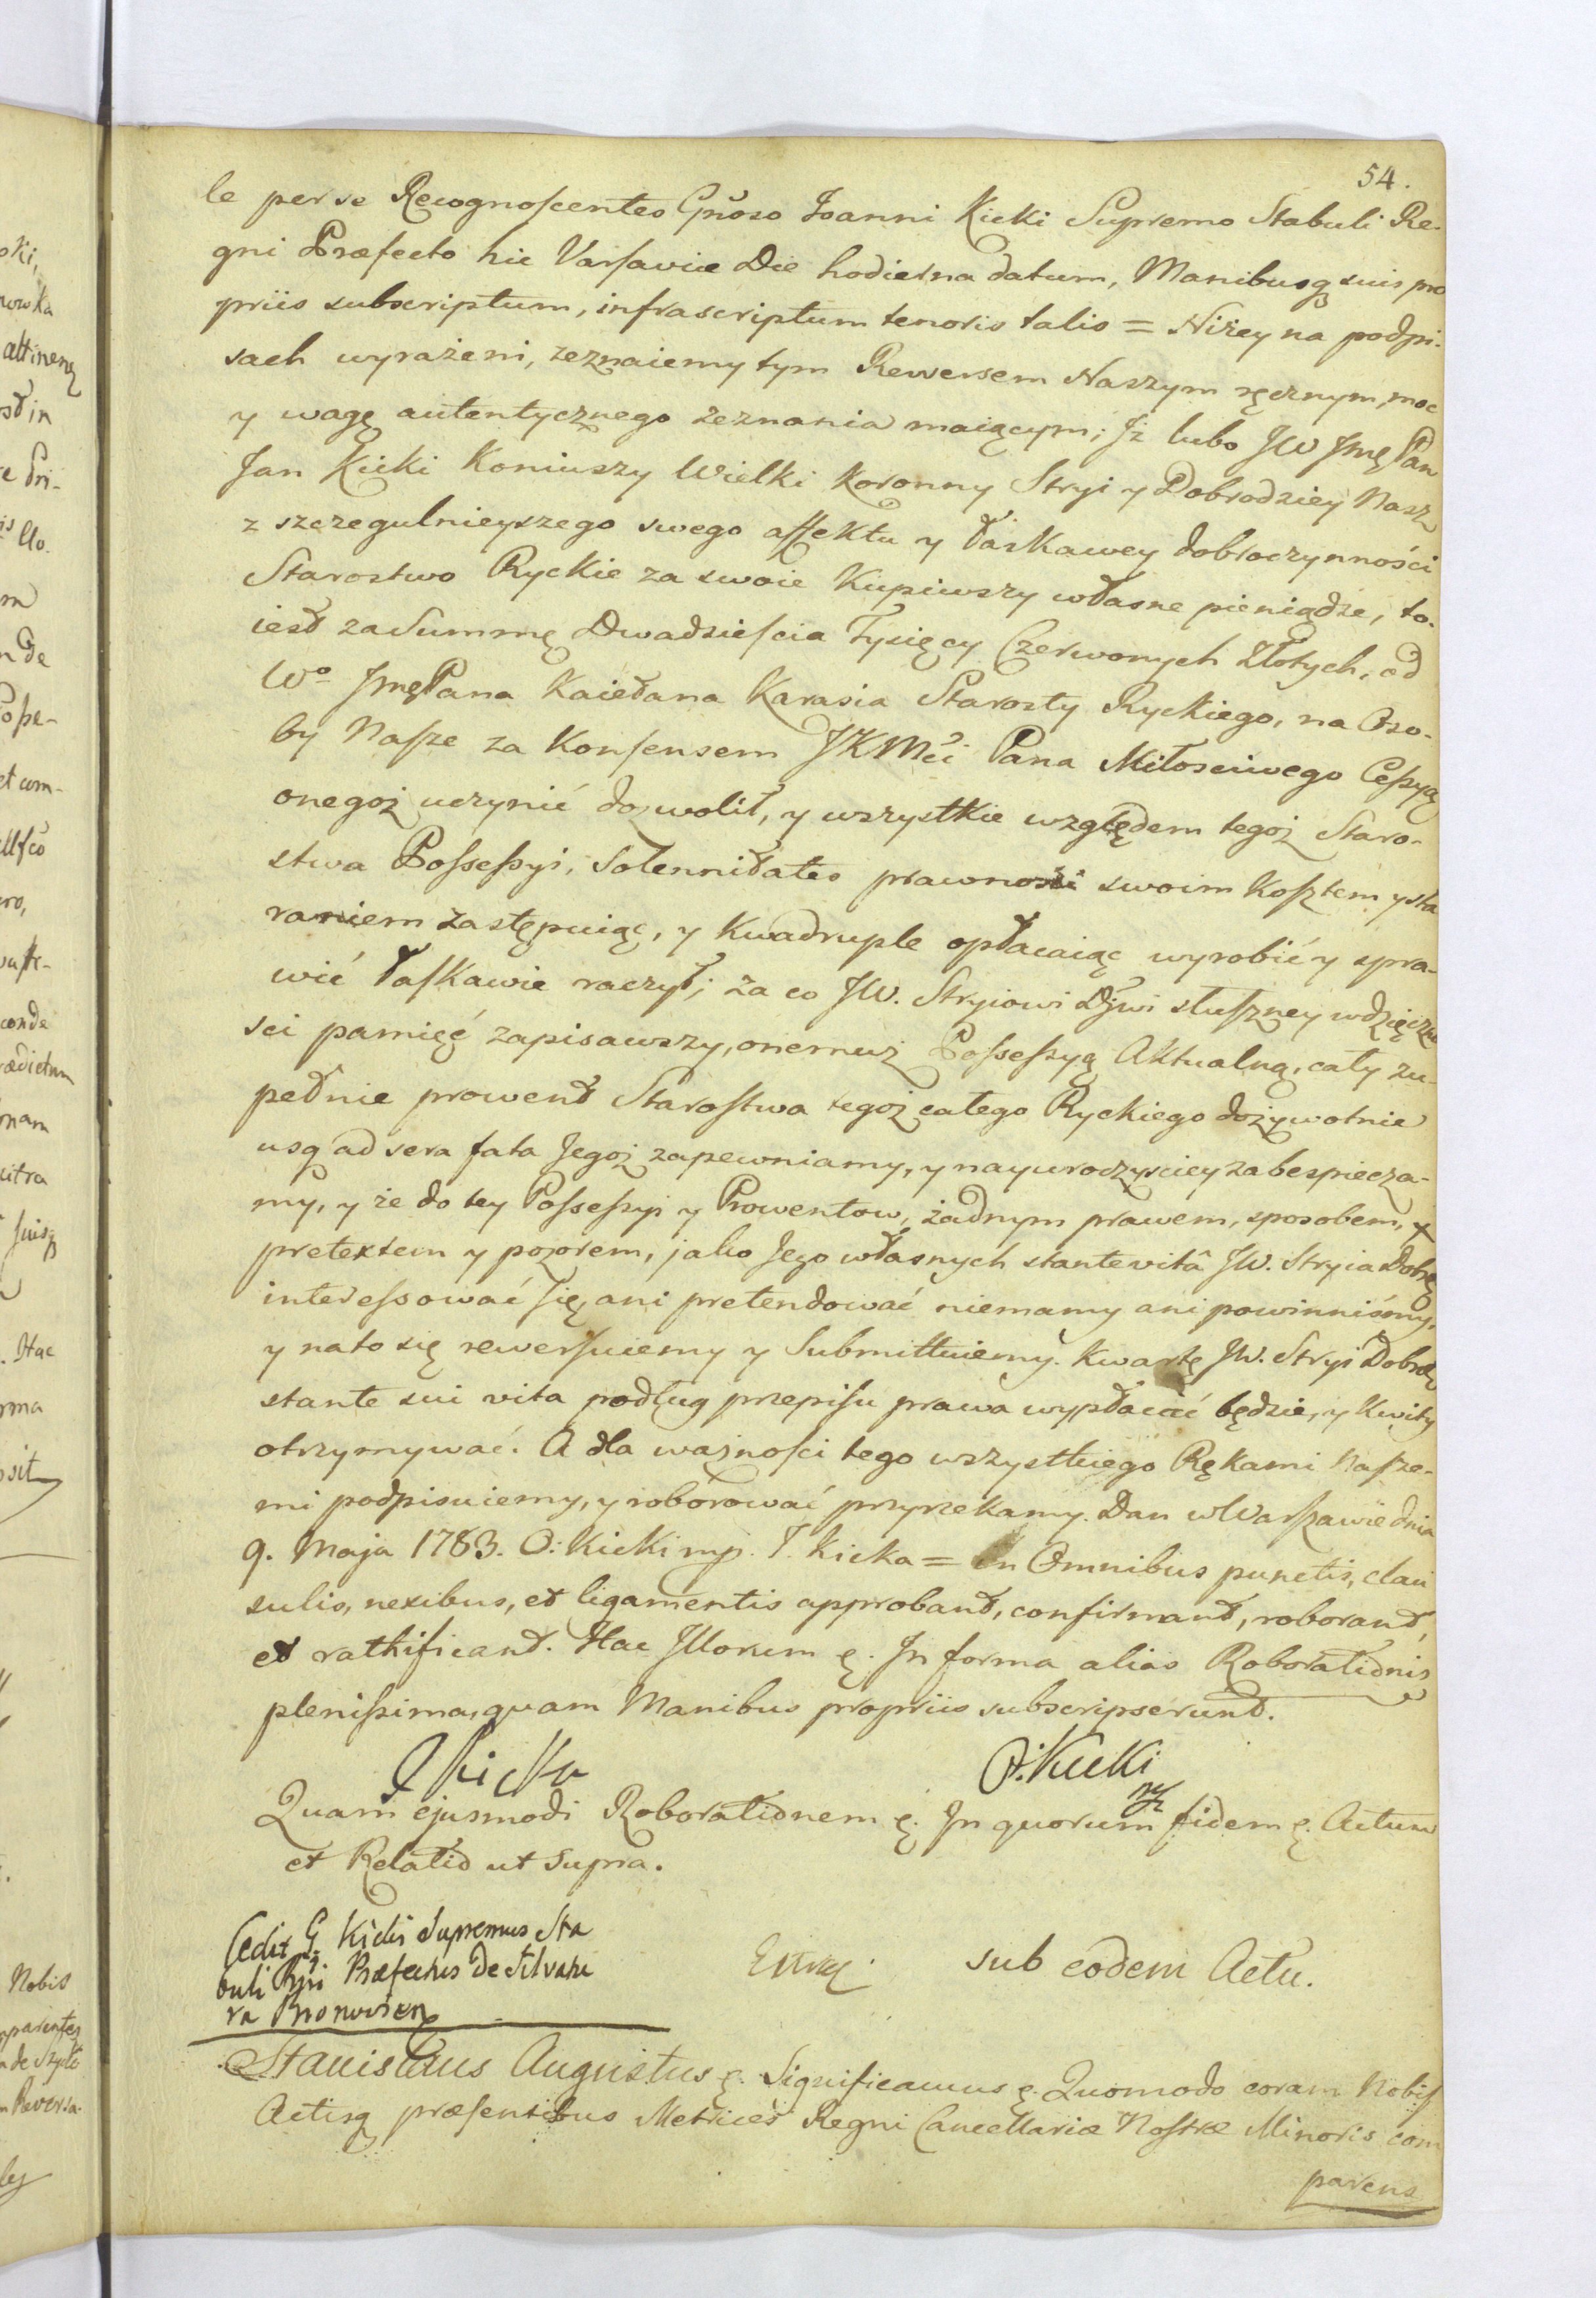 54.
le per se Recognoscentes Gnoso Joanni Kicki Supremo Stabuli Re-
gni Præfecto hic Varsaviæ Die hodierna datum, Manibusq suis pro
priis subscriptum, infrascriptum tenoris talis = Niżey na podpi-
sach wyrażeni, zeznaiemy tym Rewersem Naszym ręcznym, moc
y wagę autentycznego zeznania maiącym; Jż lubo JW JmęPan
Jan Kicki Koniuszy Wielki Koronny Stryi y Dobrodziey Nasz
z szczegulnieyszego swego affektu y łaskawey dobroczynności
Starostwo Ryckie za swoie Kupiwszy własne pieniądze, to.
iest za Summę Dwadziescia Tysięcy Czerwonych Złotych, od
Wo JmęPana Kaietana Karasia Starosty Ryckiego, na Oso-
by Nasze za Konsensem JKMći Pana Miłosciwego Cessyą
onegoż uczynić dozwolił, y wszystkie względem tegoż Staro-
stwa Possessyi, Solennitates prawności swoim Kosztem y sta
raniem zastępuiąc, y Kwadruple opłacaiąc wyrobić y spra-
wić łaskawie raczył; za co JW. Stryiowi Djwi słuszney wdzięczno
sci pamięć zapisawszy, onemuż Possessyą Aktualną, cały zu-
pełnie prowent Starostwa tegoż całego Ryckiego dożywotnie
usq ad sera fata Jegoż zapewniamy, y nayuroczysciey zabespiecza-
my, y że do tey Possessyi y Prowentow, żadnym prawem, sposobem, +
pretextem y pozorem, jako Jego własnych stante vitâ JW. Stryia Dobrę
interessować się, ani pretendować niemamy ani powinniśmy,
y nato się rewersuiemy y Submittuiemy. Kwartę JW. Stryi Dobrdz
stante sui vita podług przepisu prawa wypłacać będzie, y Kwity
otrzymywać. A dla ważności tego wszystkiego Rękami Nasze-
mi podpisuiemy, y roborować przyrzekamy. Dan w Warszawie dnia
9. Maja 1783. O: Kicki mp. T. Kicka = In Omnibus punctis, clau
sulis, nexibus, et ligamentis approbant, confirmant, roborant,
et rathificant. Hac Jllorum ę. Jn forma alias Roborationis
plenissima, quam Manibus propriis subscripserunt.
T Kicka O: Kicki
mp
Quam ejusmodi Roborationem ę. Jn quorum fidem ę. Actum
et Relatio ut supra.
Cedit G. Kicki Supremus Sta
buli Rgni Præfectus De
sub eodem Actu.
Stanislaus Augustus ę. Significamus ę. Quomodo coram Nobis
Actisq præsentibus Metrices Regni Cancellariæ Nostræ Minoris com
parens